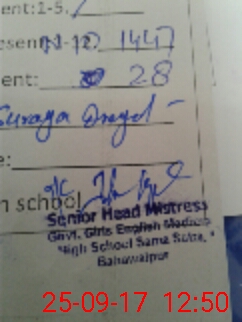 ent:1-5.
esent 1447
ent: 28
e:
h school
Senior Head Mistress
Govt. Girls English Medium
High School Sama Satta,
Bahawalpur
25-09-17 12:50